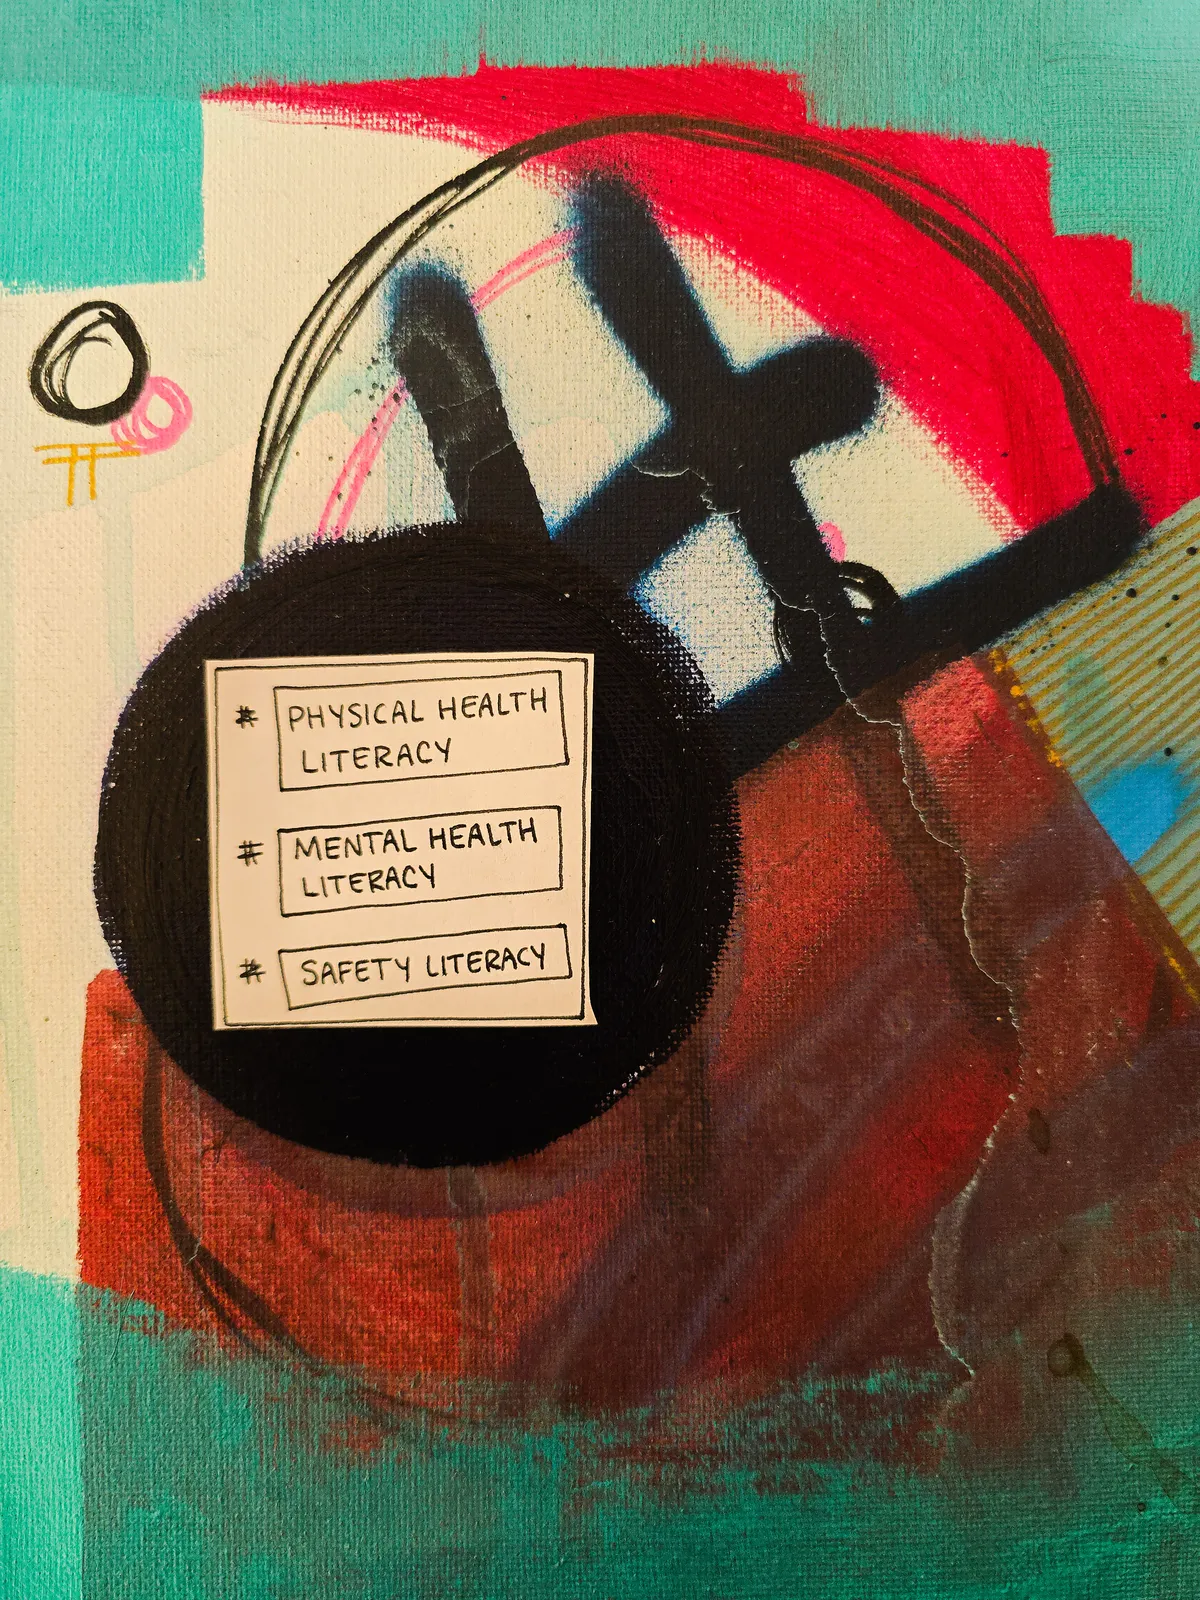 # PHYSICAL HEALTH
LITERACY
# MENTAL HEALTH
LITERACY
# SAFETY LITERACY